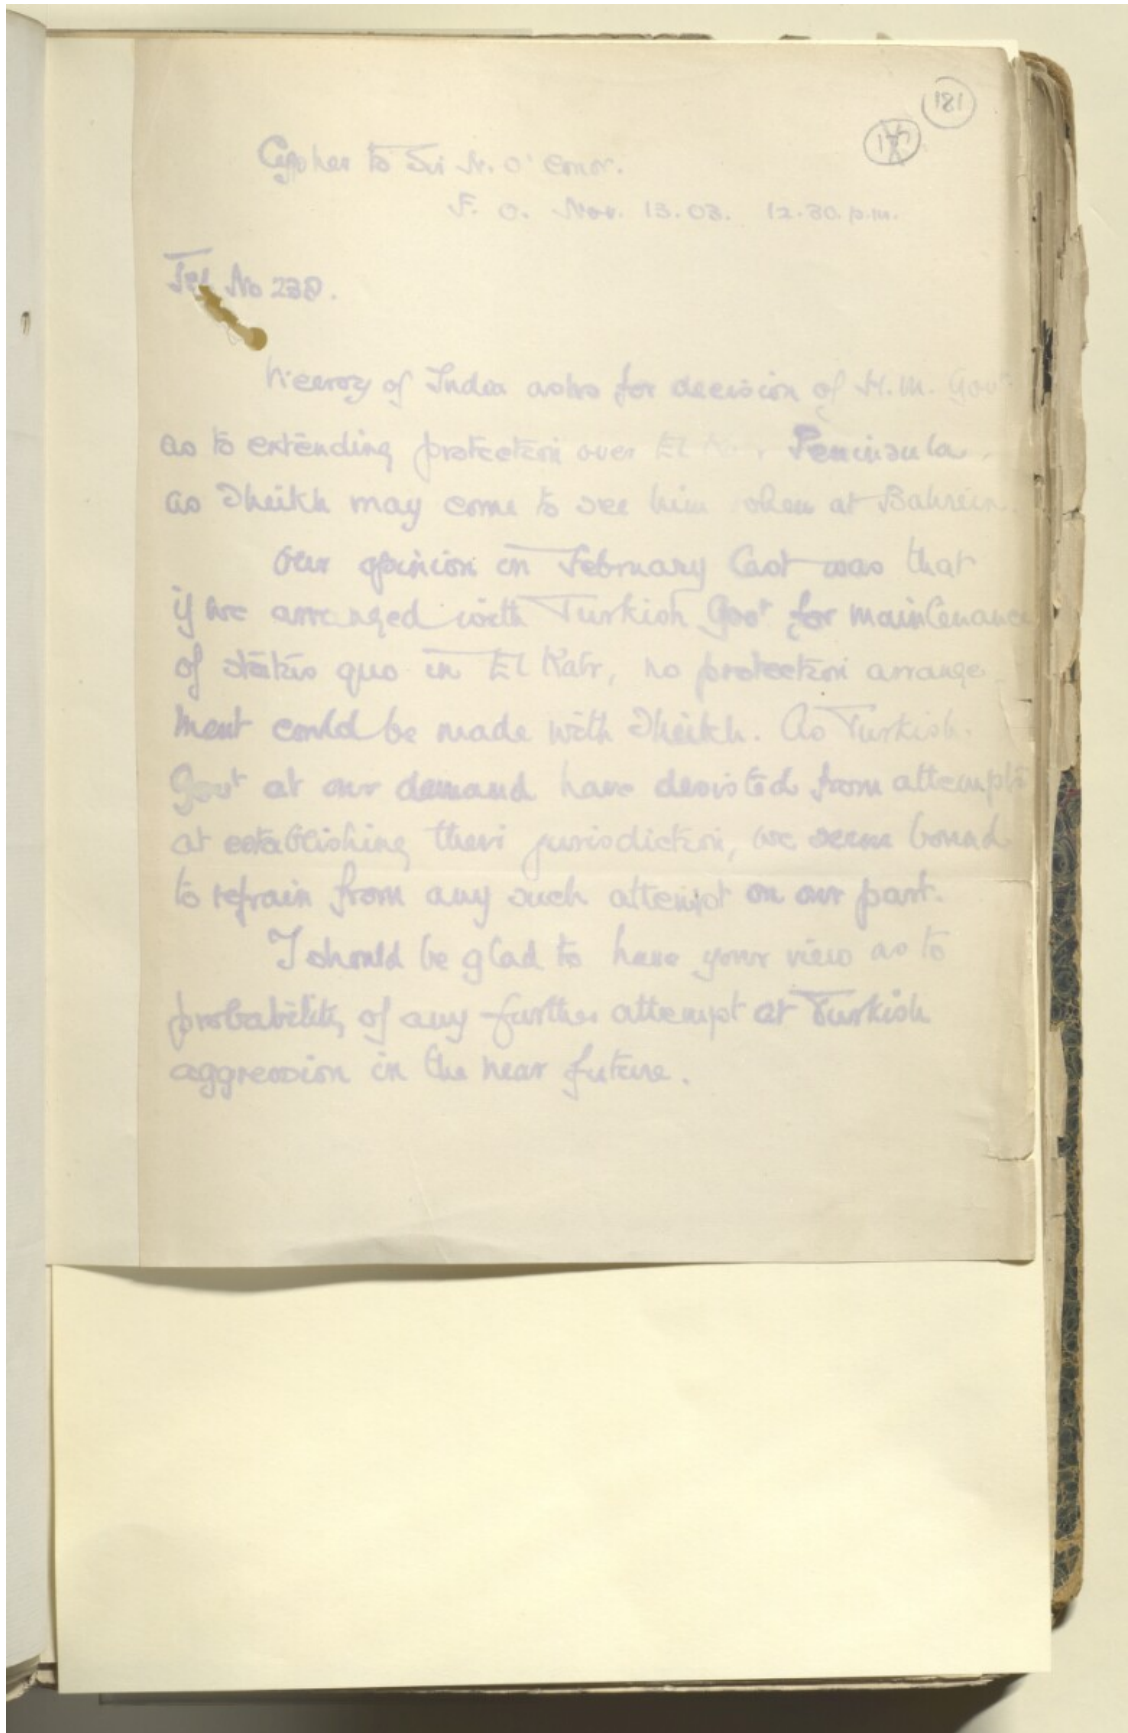 181
Cypher to Sir N. O'Conor.
F. O. Nov. 13.03. 12.30.p.m.
Tel No 238.
Viceroy of India asks for decision of H.M. Govt
as to extending protection over El Katr Peninsula,
as Sheikh may come to see him when at Bahrein.
Our opinion in February last was that
if we arranged with Turkish Govt for maintenance
of status quo in El Katr, no protection arrange-
ment could be made with Sheikh. As Turkish
Govt at our demand have desisted from attempts
at establishing their jurisdiction, we seem bound
to refrain from any such attempt on our part.
I should be glad to have your view as to
probability of any further attempt at Turkish
aggression in the near future.